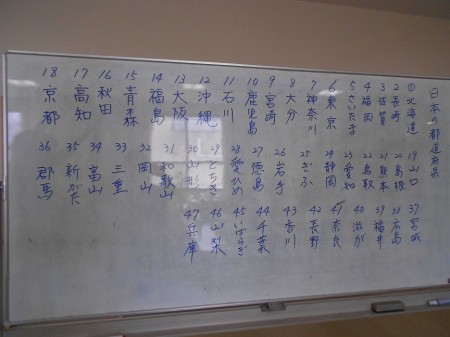 日本の都道府県
① 北海道
2 長崎
3 佐賀
4 福岡
5 さいたま
6 東京
7 神奈川
8 大分
9 宮崎
10 鹿児島
11 石川
12 沖縄
13 大阪
14 福島
15 青森
16 秋田
17 高知
18 京都
19 山口
20 島根
21 熊本
22 鳥取
23 愛知
24 静岡
25 ぎふ
26 岩手
27 徳島
28 愛ひめ
29 とちぎ
30 山形
31 和歌山
32 岡山
33 三重
34 富山
35 新がた
36 郡馬
37 宮城
38 広島
39 福井
40 滋が
41 奈良
42 長野
43 香川
44 千葉
45 いばらぎ
46 山梨
47 兵庫